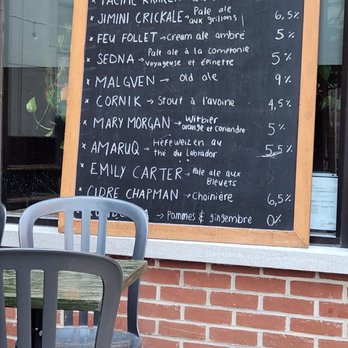 Pale ale
× JIMINI CRICKALE → aux grillons 6,5%
× FEU FOLLET → Cream ale ambré 5%
Pale ale à la comptonie
× SEDNA → voyageuse et épinette 5%
× MALGVEN → Old ale 9%
× CORNIK → Stout à l'avoine 4,5%
× MARY MORGAN → Witbier 5%
orange et coriandre
× AMARUQ → Hefeweizen au 5,5%
thé du labrador
EMILY CARTER → Pale ale aux
Bleuets
× CIDRE CHAPMAN → Choinière 6,5%
→ Pommes & gingembre 0%